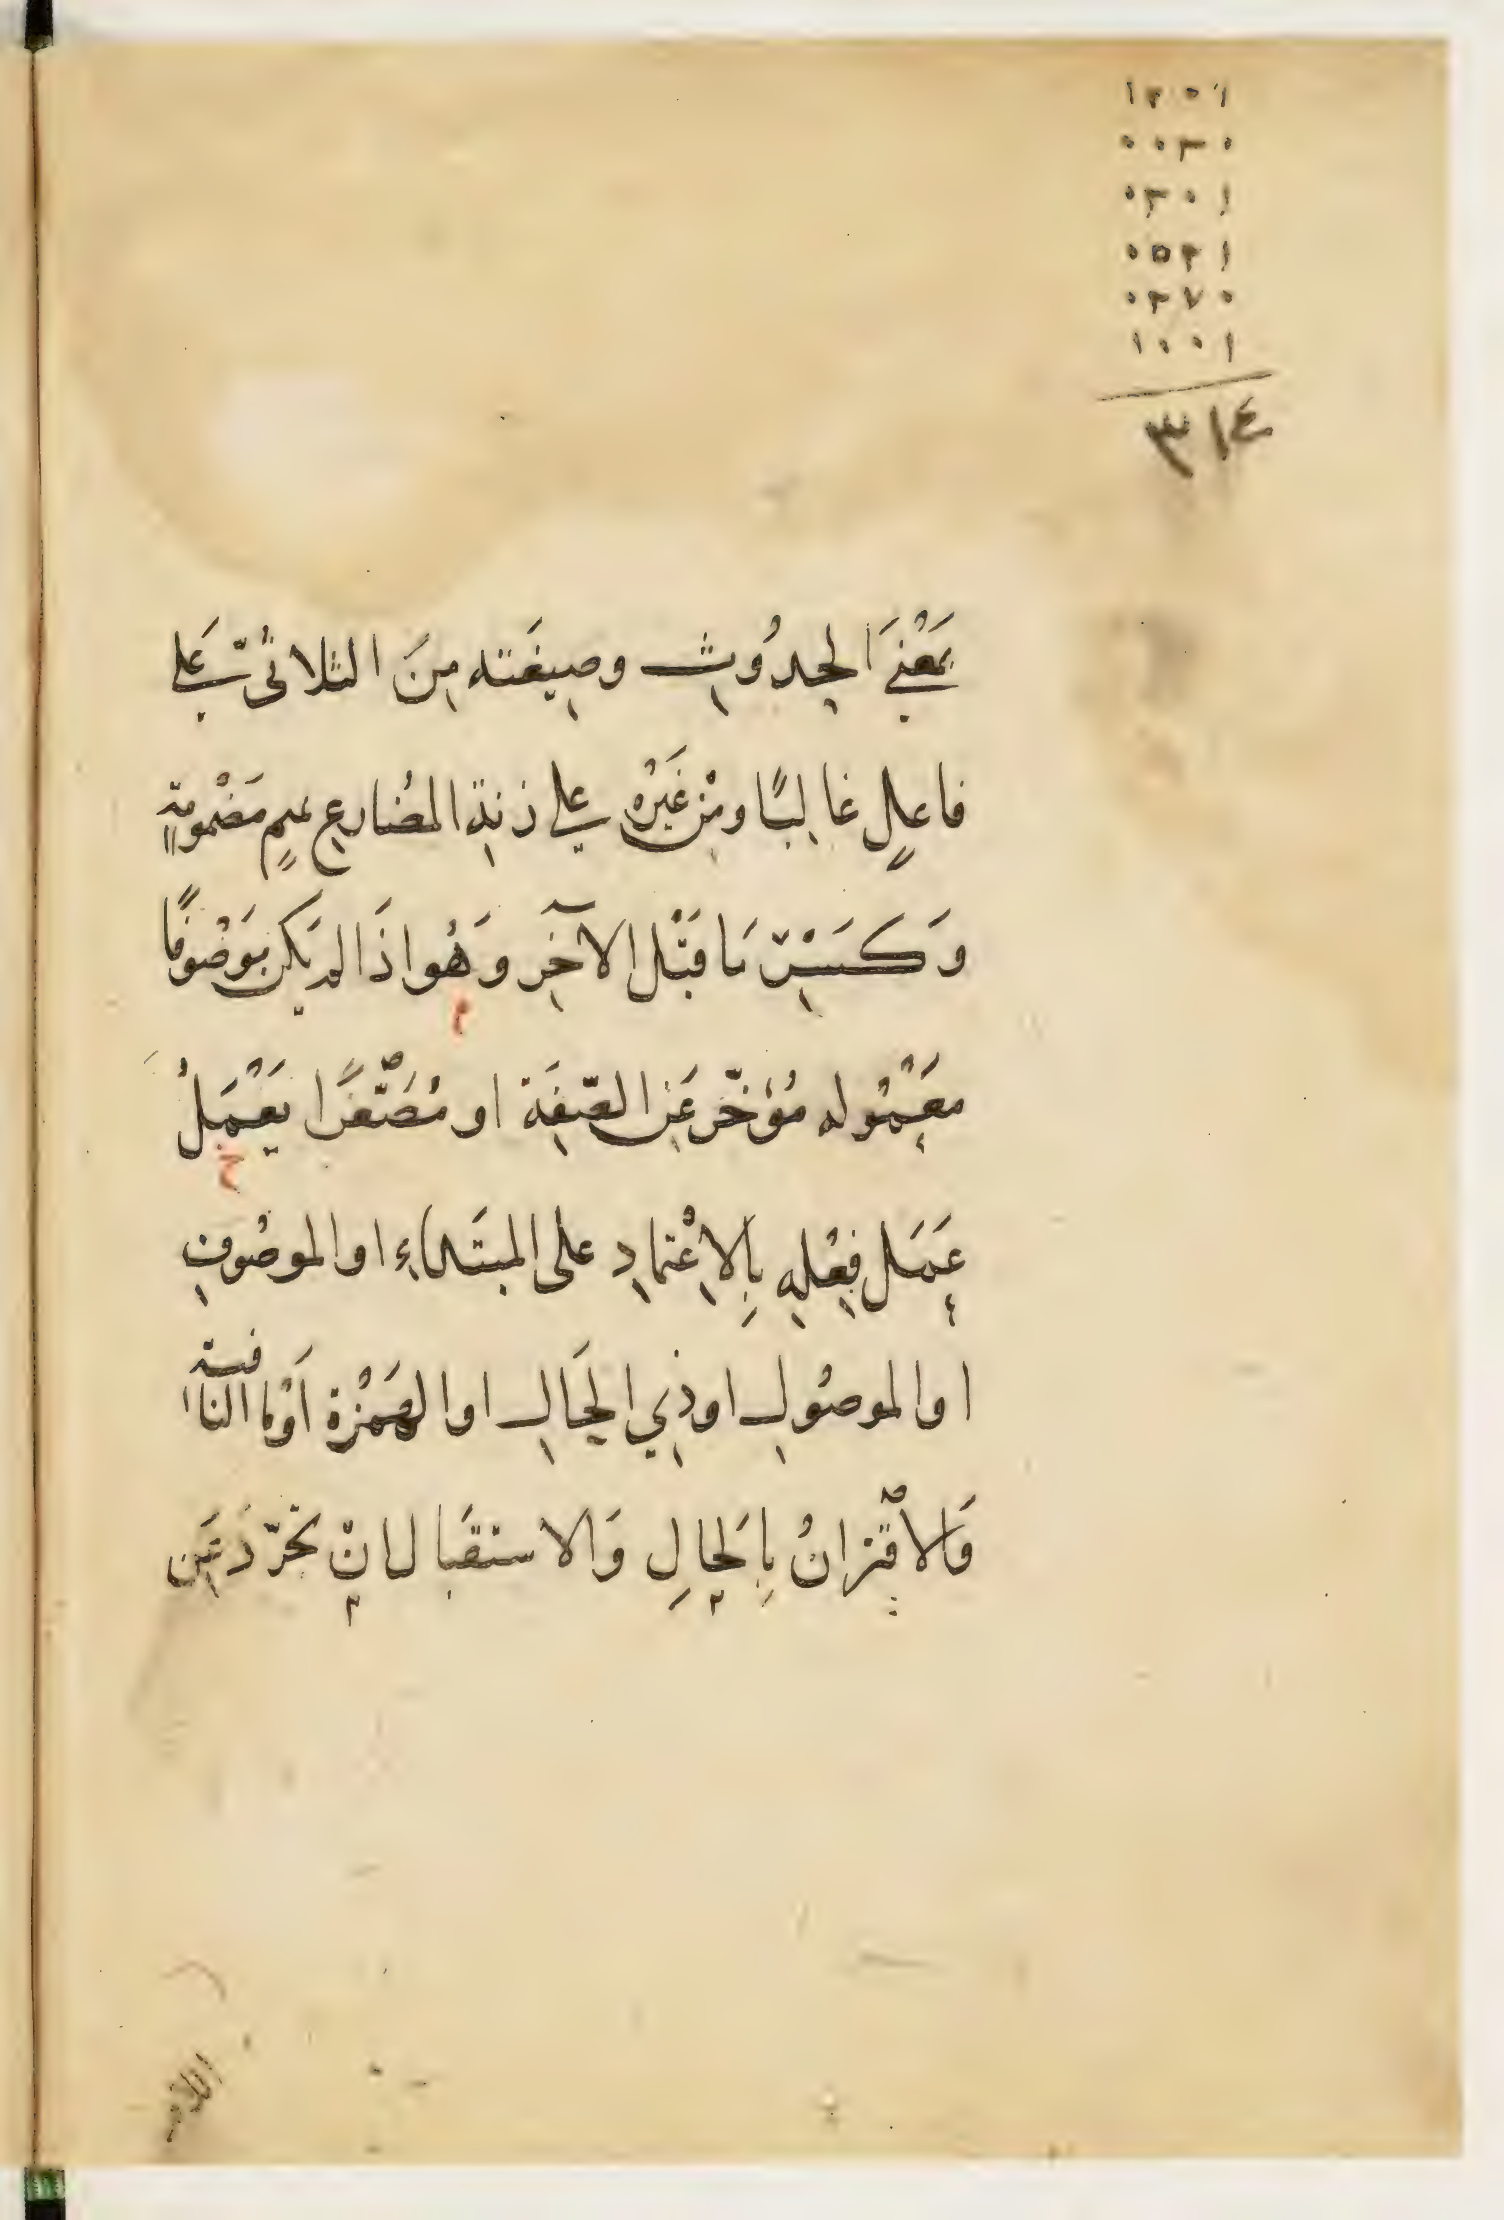 ١٢٠١
٠٠٣٠
٠٣٠١
٠٥٢١
٠٣٧٠
١٠٠١
٣١٤
بمَعْنَى الحِدُوثِ وصِيغَته مِنَ الثلاثىّ على
فاعلٍ غالبًا ومِنْ غَيْرِهِ على زنةِ المُضارِعِ بميمٍ مَضْمومةٍ
وَكَسَرْتَ مَا قَبْل الآخِر وَهُو اذَا لم يَكن مَوْصُوفًا
مَعْمُوله مُؤخّر عَنِ الصّفَة او مُصَغَّرًا يَعْمَلُ
عَمَل فِعْلِهِ بِالاِعْتمادِ على المبتَداءِ او الموصُوفِ
او الموصُولِ او ذِي الحَالِ او الهَمْزة اَوْ ما النافية
وَالاقْتِرانُ بِالحالِ وَالاستقبَال اِنْ تجرّدَ عَنِ
اللام